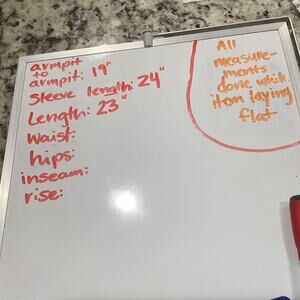 armpit
to
armpit: 19"
Sleeve length: 24"
Length: 23"
Waist:
hips:
inseam:
rise:
All
measure-
ments
done while
item laying
flat